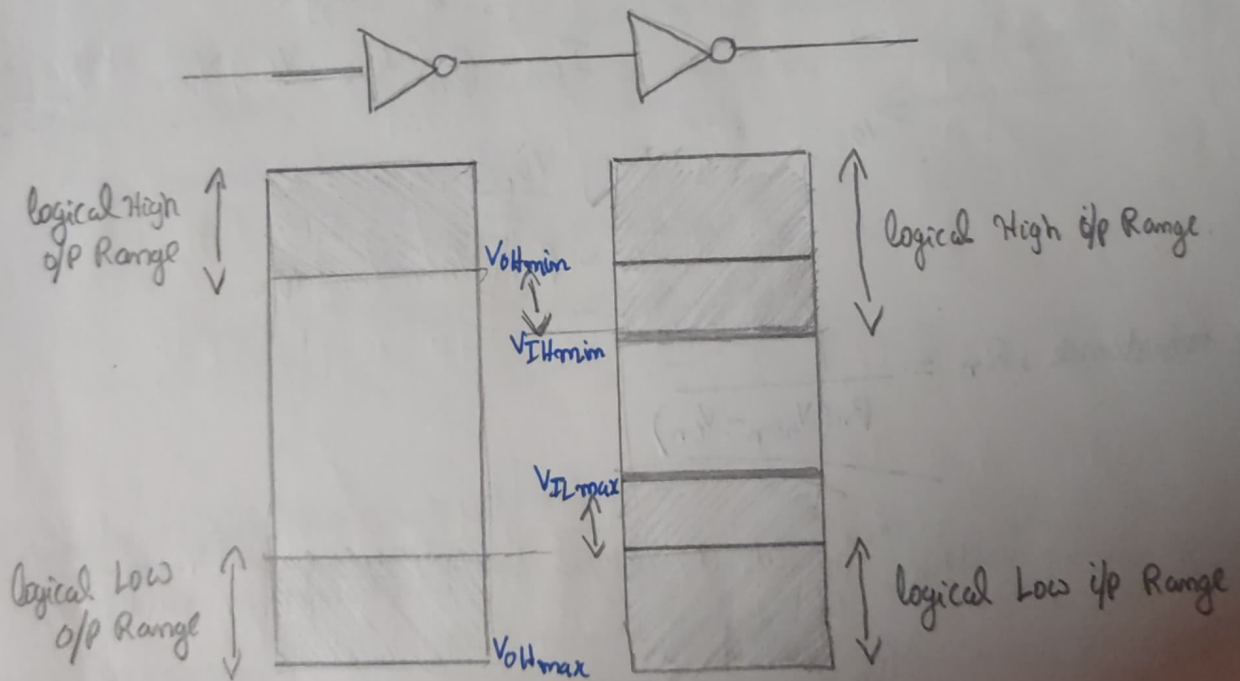 logical High
o/p Range
VOHmin
VIHmin
logical High i/p Range
VILmax
logical Low
o/p Range
VOHmax
logical Low i/p Range